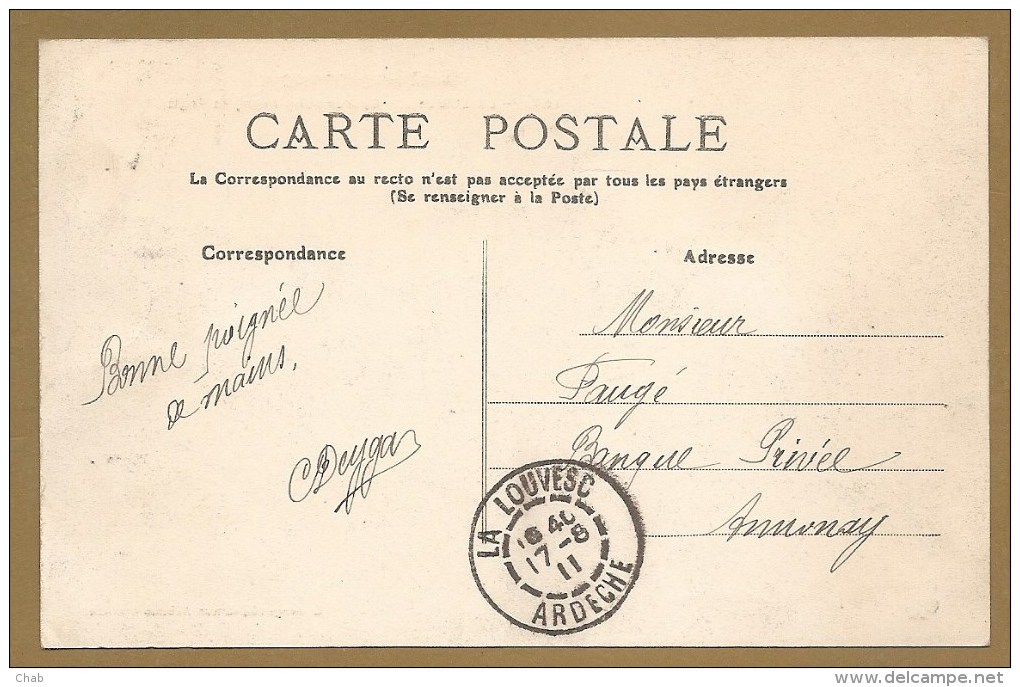 CARTE POSTALE
La Correspondance au recto n'est pas acceptée par tous les pays étrangers
(Se renseigner à la Poste)
Correspondance
Adresse
Bonne poignée
de mains,
CDeyga
Monsieur
Faugé
Banque Privée
Annonay
LA LOUVESC
16 40
17-8
11
ARDECHE
Chab
delcampe.net